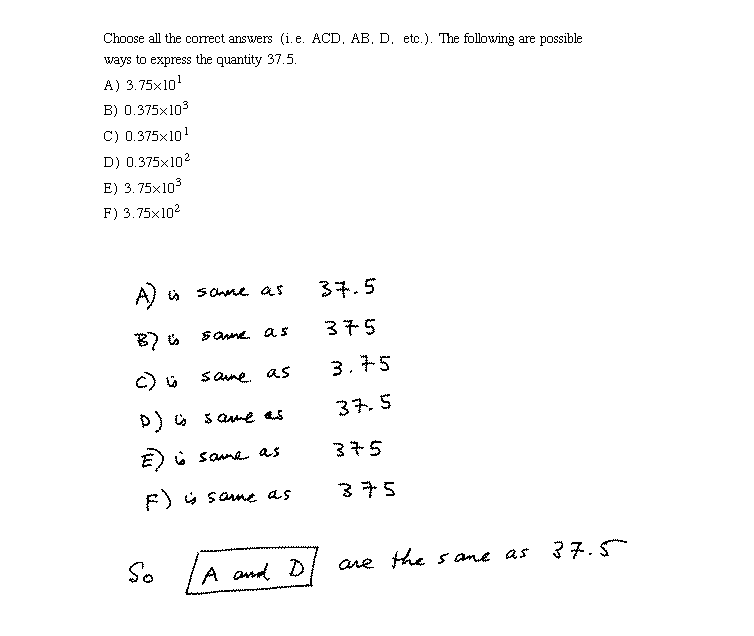 Choose all the correct answers (i.e. ACD, AB, D, etc.). The following are possible
ways to express the quantity 37.5.
A) 3.75×10¹
B) 0.375×10³
C) 0.375×10¹
D) 0.375×10²
E) 3.75×10³
F) 3.75×10²
A) is same as 37.5
B) is same as 375
C) is same as 3.75
D) is same as 37.5
E) is same as 375
F) is same as 375
So A and D are the same as 37.5